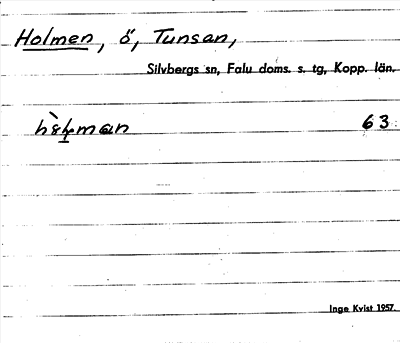 Holmen, ö, Tunsen,
Silvbergs sn, Falu doms. s. tg, Kopp. län.
63
Inge Kvist 1957.